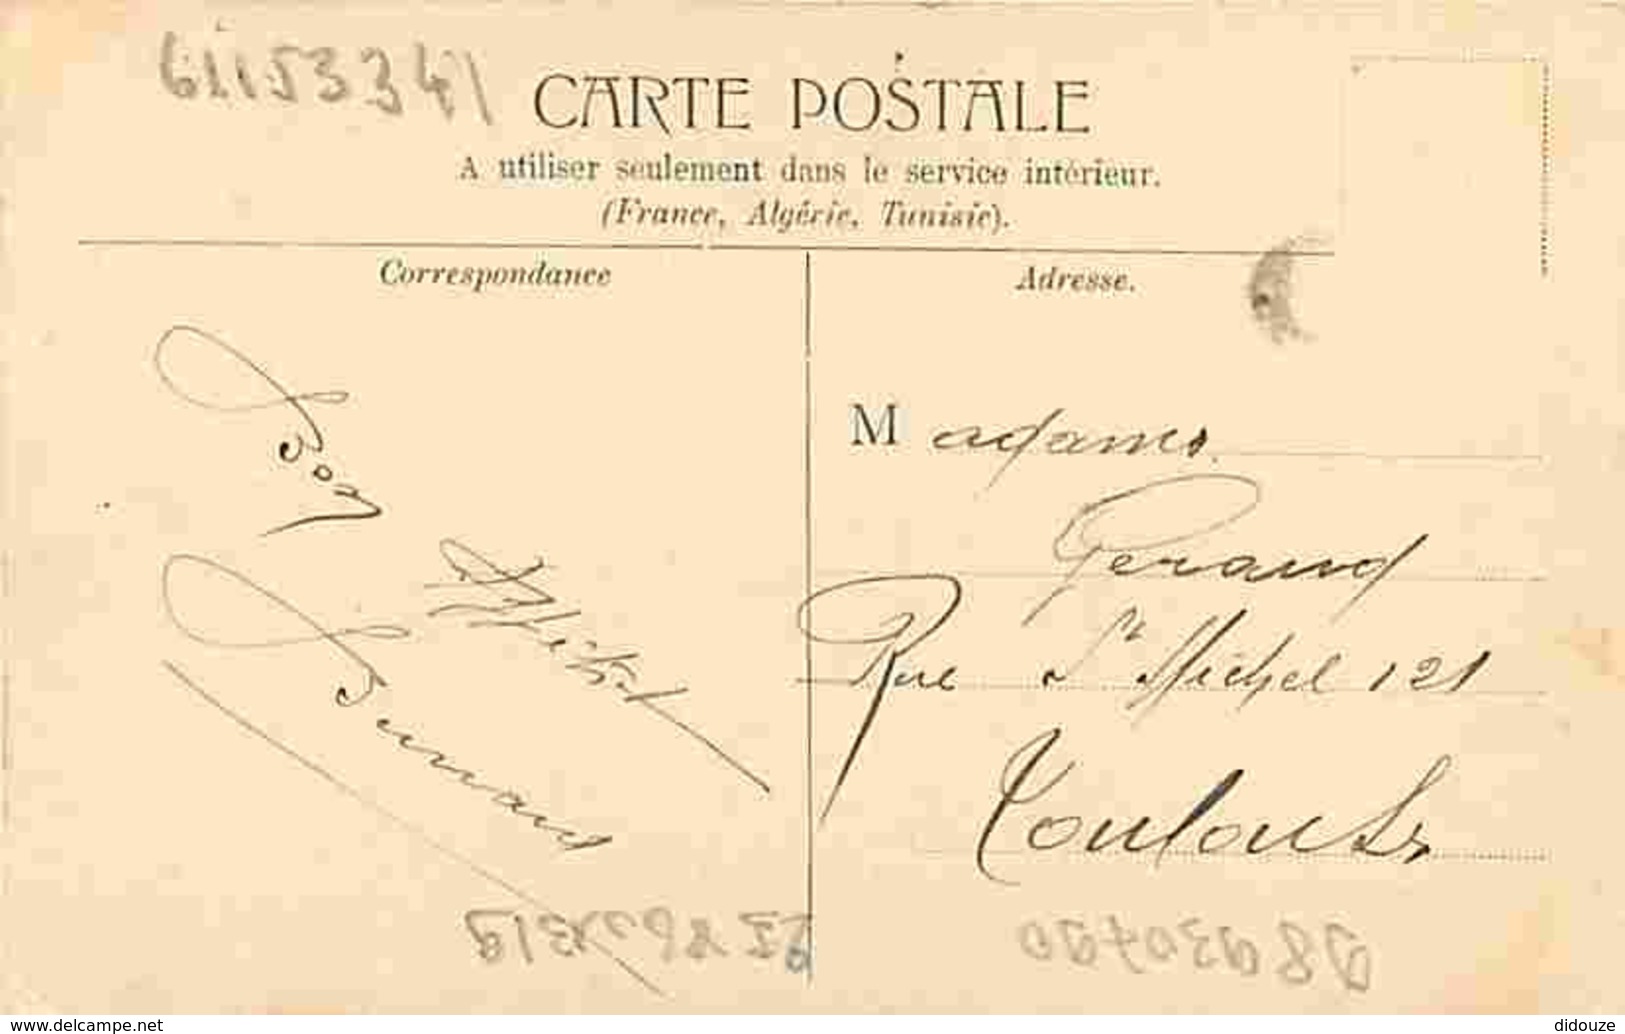 61153341
CARTE POSTALE
A utiliser seulement dans le service intérieur.
(France, Algérie, Tunisie).
Correspondance
Adresse.
Bon
Fernand
Madame
Geraud
Rue St Michel 121
Toulouse
www.delcampe.net
didouze